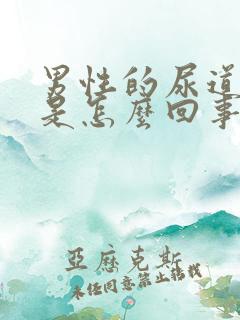 男性的尿道
是怎麼回事
亞歷克斯
未經同意禁止轉載